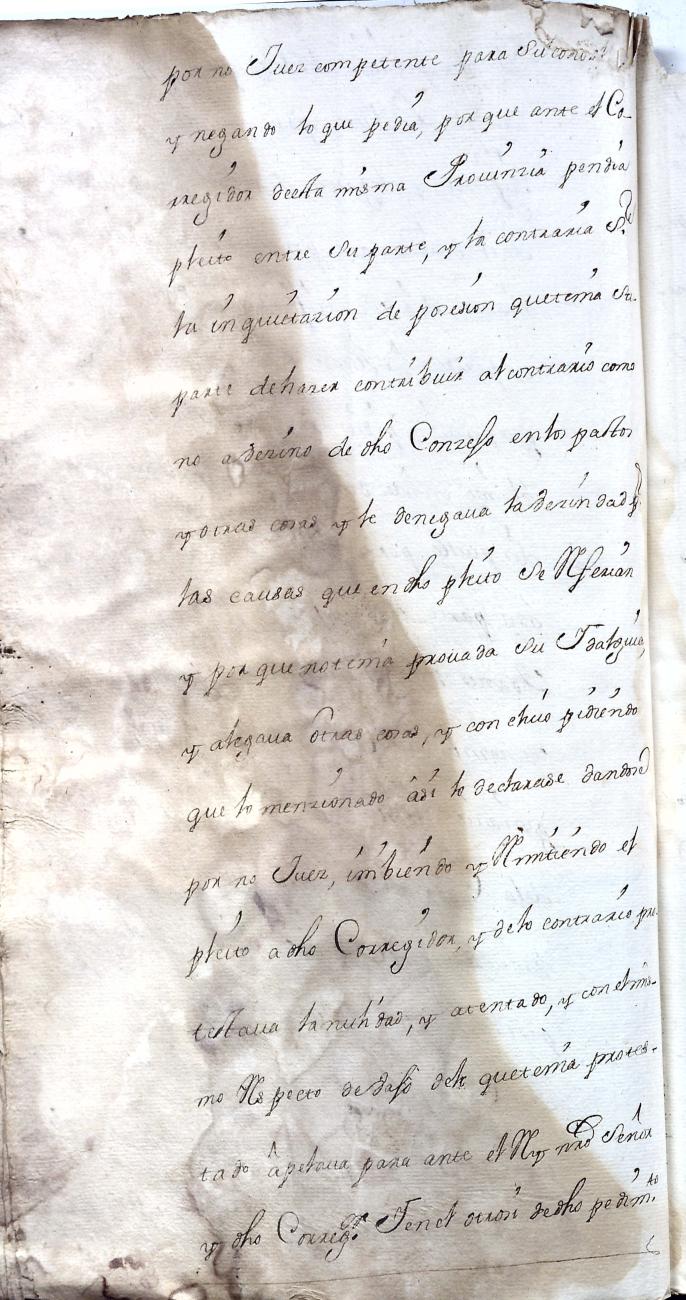 por no Juez competente para su cono.
y negando lo que pedia, porque ante el Co-
rregidor deesta misma Provinzia pendia
pleito entre su parte, y la contraria Sre
la inquietazion de posesion que tenia su
parte de hazer contribuir al contrario como
no a Vezino de dho Conzejo en los pastos
y otras cosas y le denegava la Vezindad p
las causas que en dho pleito se Referian
y por que no tenia provada su Idalguia,
y alegava otras cosas, y concluió pidiendo
que lo menzionado asi lo declarase dandose
por no Juez, imbiendo y Rmitiendo el
pleito a dho Corregidor, y delo contrario pro
testava la nulidad, y atentado, y con el mis-
mo Respecto de Vaso dela que tenia protes-
tado apelava para ante el Rey nro Señor
y dho Corregor Ten el otrosi de dho pedimto